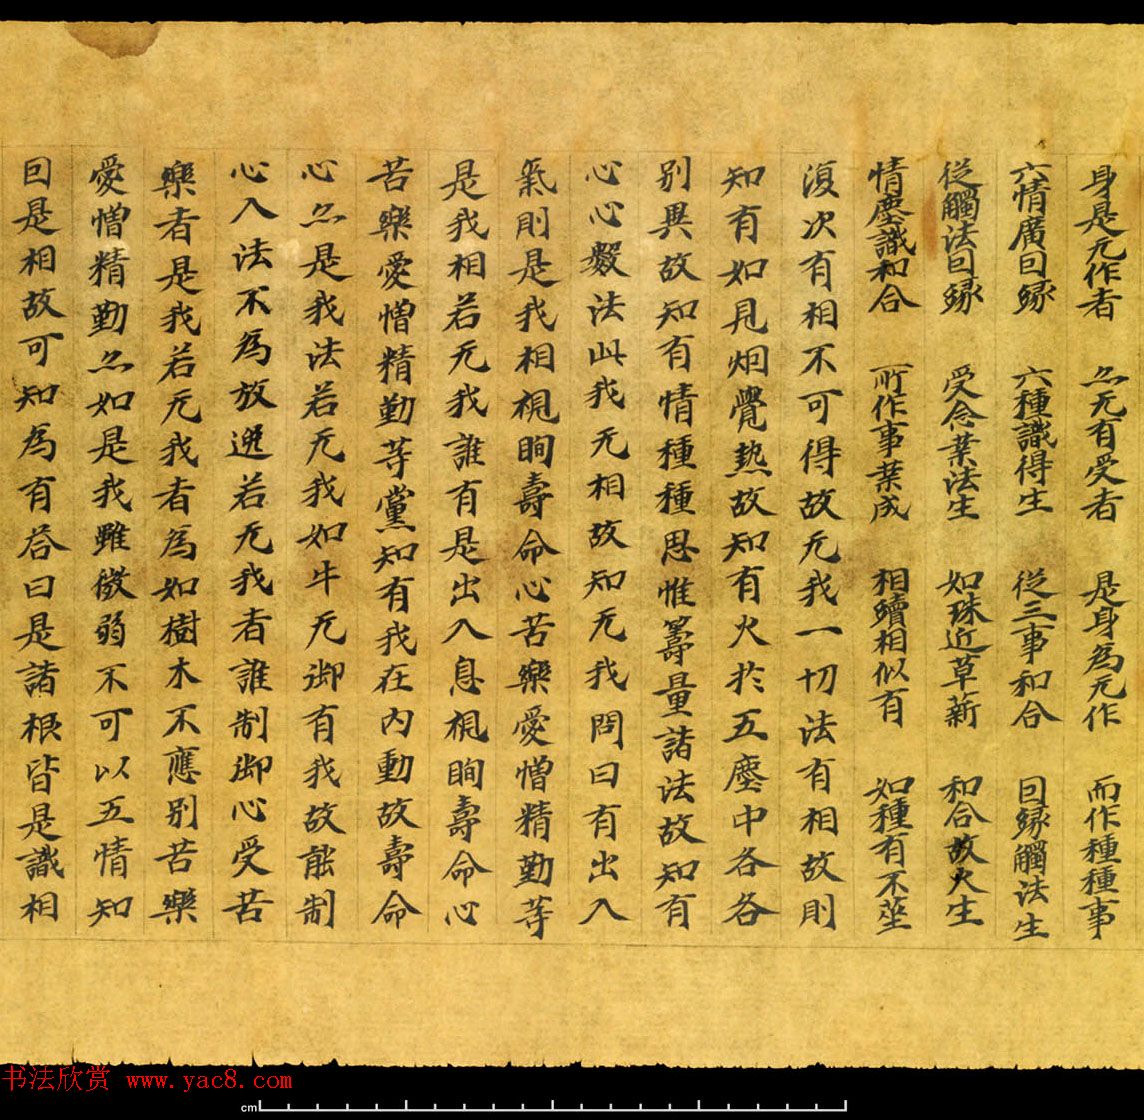 身是无作者 亦无有受者 是身為无作 而作種種事
六情廣因緣 六種識得生 從三事和合 因緣觸法生
從觸法因緣 受念業法生 如珠近草薪 和合故火生
情塵識和合 所作事業成 相續相似有 如種有不莖
復次有相不可得故无我一切法有相故則
知有如見烟覺熱故知有火於五塵中各各
别異故知有情種種思惟籌量諸法故知有
心心數法此我无相故知无我問曰有出入
氣則是我相視眴壽命心苦樂愛憎精勤等
是我相若无我誰有是出入息視眴壽命心
苦樂愛憎精勤等當知有我在内動故壽命
心亦是我法若无我如牛无御有我故能制
心入法不為放逸若无我者誰制御心受苦
樂者是我若无我者為如樹木不應别苦樂
愛憎精勤亦如是我雖微弱不可以五情知
因是相故可知為有答曰是諸根皆是識相
书法欣赏 www.yac8.com
cm